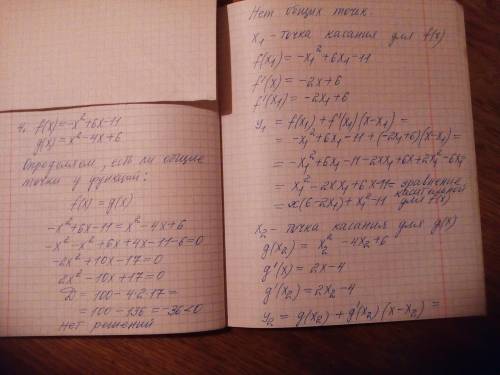 4. f(x)=-x²+6x-11
g(x)=x²-4x+6
Определим, есть ли общие
точки у функций:
f(x)=g(x)
-x²+6x-11=x²-4x+6
-x²-x²+6x+4x-11-6=0
-2x²+10x-17=0
2x²-10x+17=0
D=100-4·2·17=
=100-136=-36<0
нет решений
Нет общих точек.
x₁-точка касания для f(x)
f(x₁)=-x₁²+6x₁-11
f'(x)=-2x+6
f'(x₁)=-2x₁+6
y₁=f(x₁)+f'(x₁)(x-x₁)=
=-x₁²+6x₁-11+(-2x₁+6)(x-x₁)=
=-x₁²+6x₁-11-2xx₁+6x+2x₁²-6x₁
=x₁²-2xx₁+6x-11-уравнение
=x(6-2x₁)+x₁²-11 касательной для f(x)
x₂-точка касания для g(x)
g(x₂)=x₂²-4x₂+6
g'(x)=2x-4
g'(x₂)=2x₂-4
y₂=g(x₂)+g'(x₂)(x-x₂)=